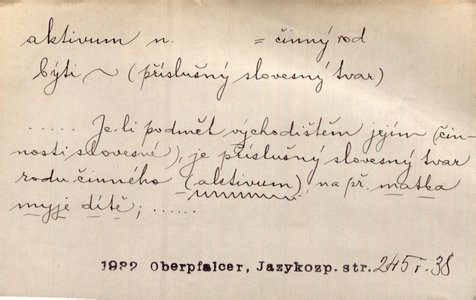 aktivum n. = činný rod
býti ~ (příslušný slovesný tvar)
..... Je-li podmět východištěm jejím (čin-
nosti slovesné), je příslušný slovesný tvar
rodu činného (aktivum), na př. matka
myje dítě; ......
1932 Oberpfalcer, Jazykozp. str. 245 r. 38